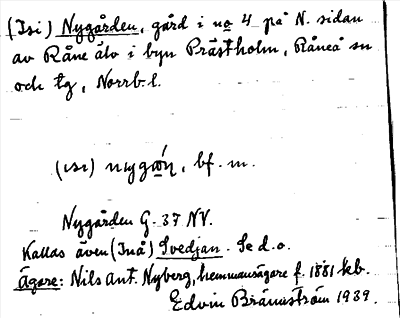 (Isi) Nygården, gård i no 4 på N. sidan
av Råne älv i byn Prästholm, Råneå sn
och tg, Norrb. l.
(ısı) nygɷ́ṇ, bf. m.
Nygården G. 37 NV.
Kallas även (Inå) Svedjan. Se d.o.
Ägare: Nils Ant. Nyberg, hemmansägare f. 1881 kb.
Edvin Brännström 1939.